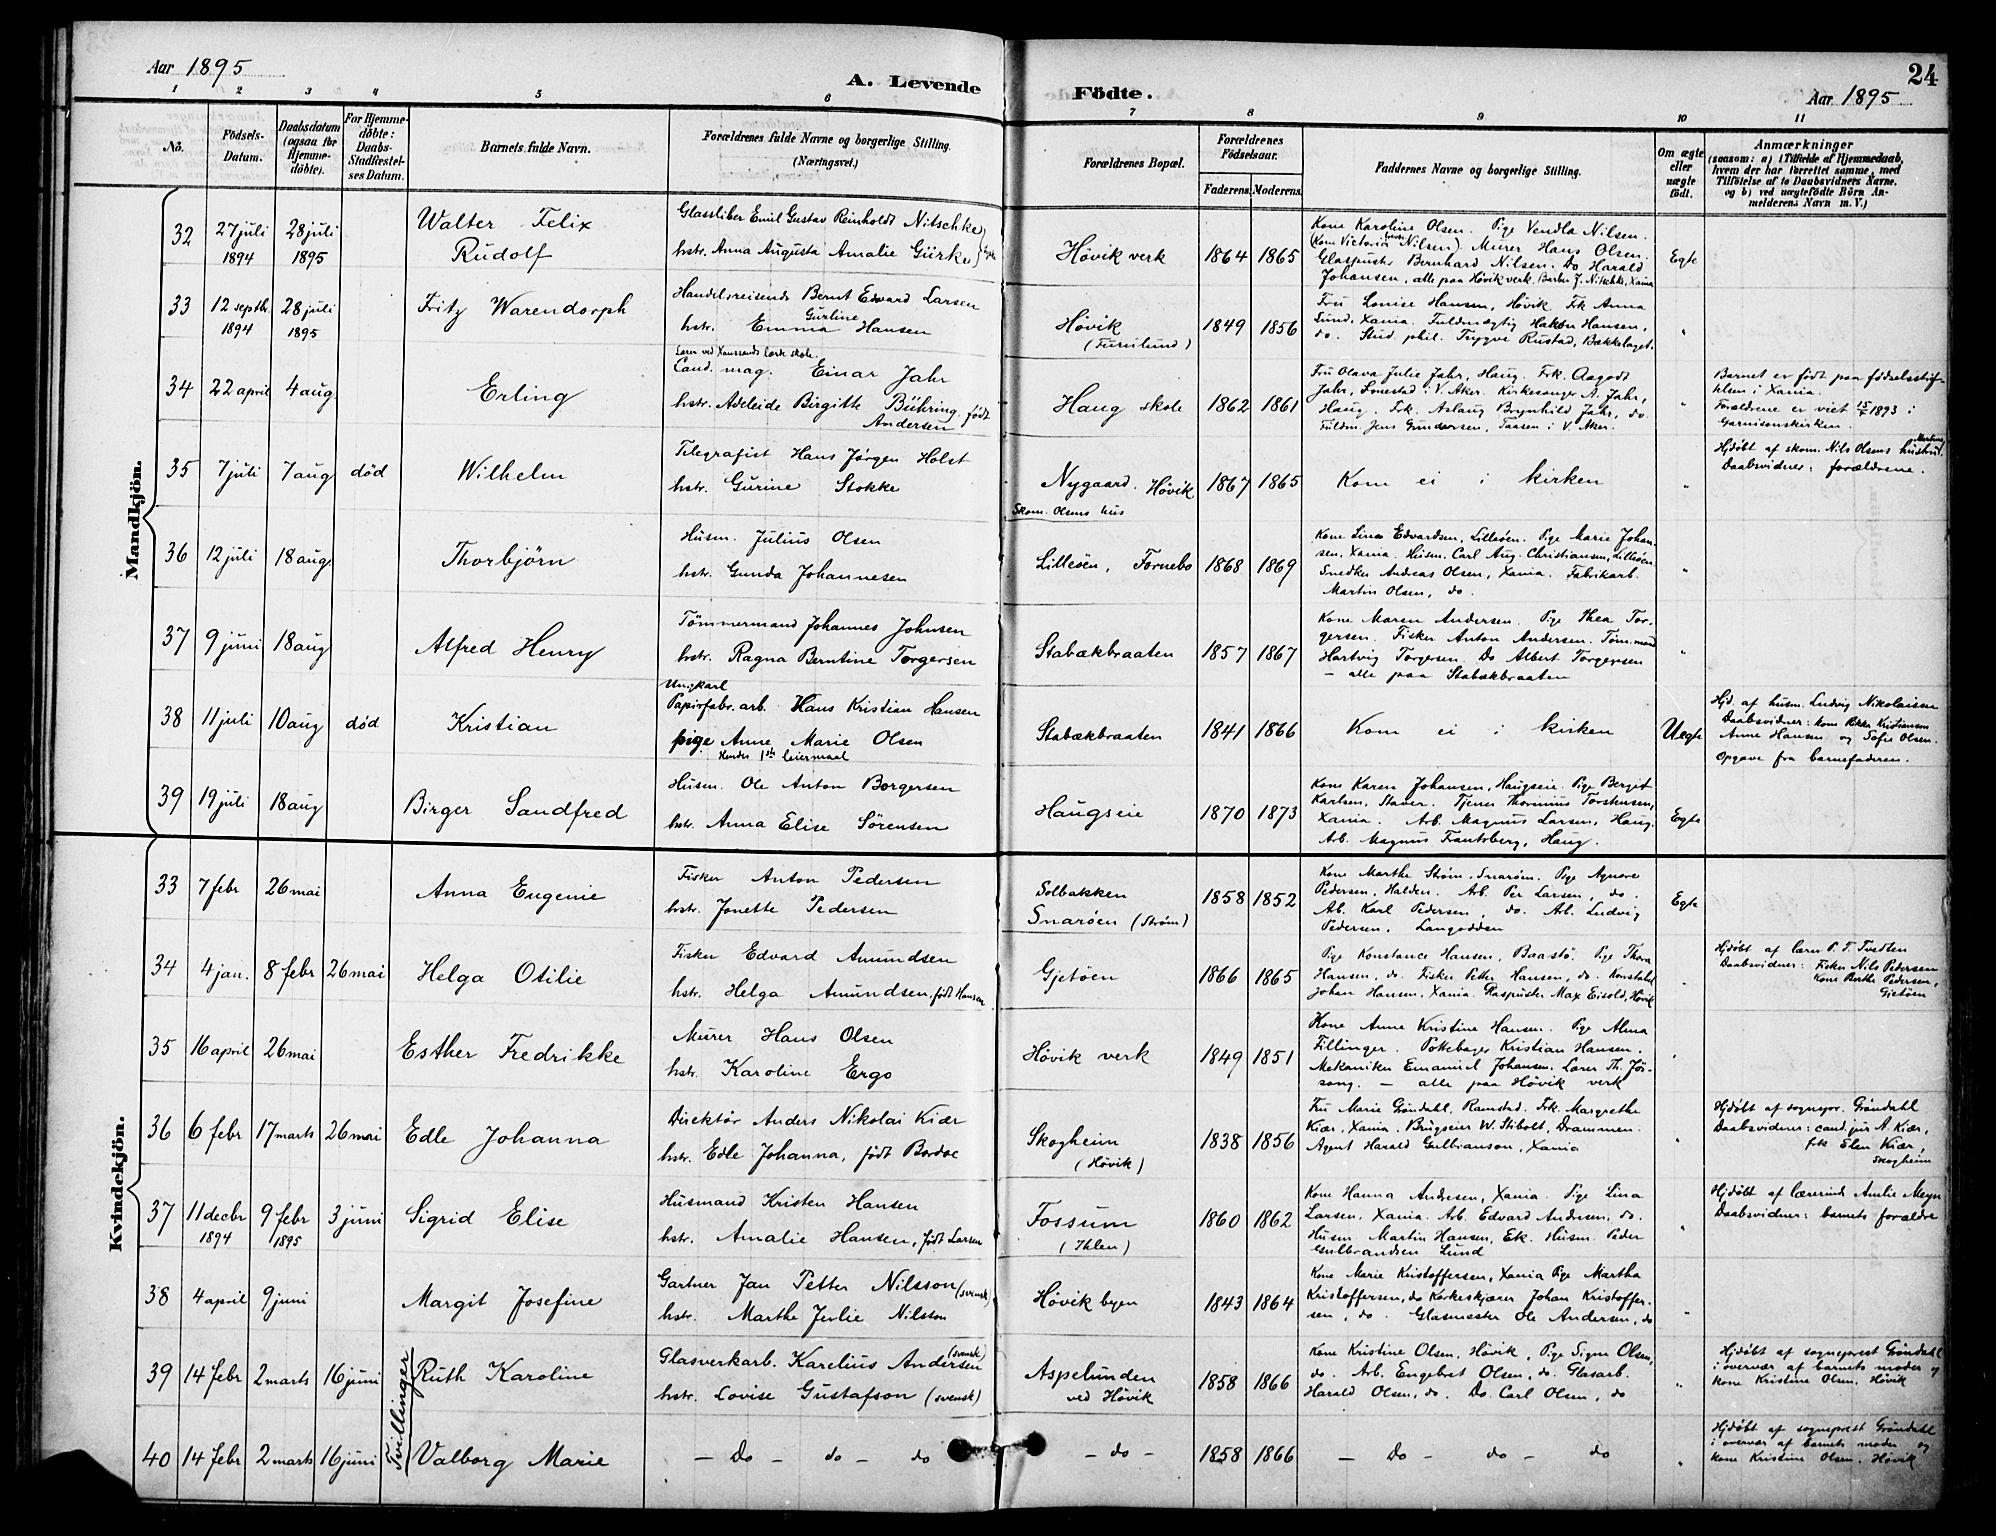 Aar 1895
A. Levende
Födte.
24
Aar 1895
1 2 3 4 5 6 7 8 9 10 11
No.
Födsels-Datum.
Daabsdatum (ogsaa for Hjemme-döbte).
For Hjemme-döbte: Daabs-Stadfæstelses Datum.
Barnets fulde Navn.
Forældrenes fulde Navne og borgerlige Stilling.
(Næringsvei.)
Forældrenes Bopæl.
Forældrenes Födselsaar.
Faderens. Moderens.
Faddernes Navne og borgerlige Stilling.
Om ægte eller uægte födt.
Anmærkninger
(saasom: a) i Tilfælde af Hjemmedaab,
hvem der har forrettet samme, med
Tilföielse af to Daabsvidners Navne.
og b) ved uægtefödte Börn An-
melderens Navn m. V.)
Mandkjön.
32 27 juli 1894 28 juli 1895
Walter Felix
Rudolf
Glassliber Emil Gustav Reinholdt Nitschke
hstr. Anna Augusta Amalie Gürke
Høvik verk
1864 1865
Kone Karoline Olsen. Pige Vendla Nilsen.
(Kone Victoria Nilsen). Murer Hans Olsen.
Glaspuster Bernhard Nilsen, Do. Harald
Johansen, alle paa Høvik verk. Barber J. Nitschke, Xania
Egte
33 12 septbr 1894 28 juli 1895
Fritz Warendorph
Handelsreisende Bernt Edvard Larsen
hstr. Emma Gurline Hansen
Høvik
(Furulund)
1849 1856
Fru Louise Hansen, Høvik. Frk Anna
Lund, Xania. Fuldmægtig Hakon Hansen,
do. Stud. phil. Trygve Rustad, Bækkelaget.
"
34 22 april 4 aug.
Erling
Lærer ved Xanssands lærde skole.
Cand. mag. Einar Jahr
hstr. Adeleide Birgitte Bühring, født
Andersen
Haug skole
1862 1861
Fru Olava Julie Jahr, Haug. Frk. Aagodt
Jahr, Sonestad i V. Aker. Kirkesanger A. Jahr,
Haug. Frk. Aslaug Brynhild Jahr, do.
Fuldm. Jens Gundersen, Taasen i V. Aker.
"
Barnet er født paa fødselsstif-
telsen i Xania.
Forældrene er viet 15/2 1893 i
Garnisonskirken.
35 7 juli 7 aug død
Wilhelm
Telegrafist Hans Jørgen Holst
hstr. Gurine Stokke
Nygaard. Høvik
Skom. Olsens hus
1867 1865
Kom ei i kirken
"
Hjdøbt af skom. Nils Olsens hustru
Daabsvidner: forældrene.
36 12 juli 18 aug
Thorbjørn
Husm. Julius Olsen
hstr. Gunda Johannesen
Lilleøen, Fornebo
1868 1869
Kone Lina Edvardsen, Lilleøen. Pige Marie Johan-
sen, Xania. Husm. Carl Aug. Christiansen, Lilleøen
Snedker Andreas Olsen, Xania. Fabrikarb.
Martin Olsen, do.
"
37 9 juni 18 aug
Alfred Henry
Tømmermand Johannes Johnsen
hstr. Ragna Berntine Torgersen
Stabækbraaten
1857 1867
Kone Maren Andersen. Pige Thea Tor-
gersen. Fisker Anton Andersen. Tømmand
Hartvig Torgersen. Do Albert Torgersen
— alle paa Stabækbraaten
"
38 11 juli 10 aug død
Kristian
Ungkarl
Papirfabr. arb. Hans Kristian Hansen
pige Anne Marie Olsen
Hendes 1ste leiermaal
Stabækbraaten
1841 1866
Kom ei i kirken
Uegte
Hjd. af husm. Ludvig Nikolaisen
Daabsvidner: kone Rikke Kristiansen
Anne Hansen og Sofie Olsen.
Opgave fra barnefaderen.
39 19 juli 18 aug
Birger Sandfred
Husm. Ole Anton Borgersen
hstr. Anna Elise Sørensen
Haugseie
1870 1873
Kone Karen Johansen, Haugseie. Pige Bergit
Karlsen, Staver. Tjener Thorinius Torstensen,
Xania. Arb. Magnus Larsen, Haug.
Arb. Magnus Frantsberg, Haug.
Egte
Kvindekjön.
33 7 febr 26 mai
Anna Eugenie
Fisker Anton Pedersen
hstr. Jonette Pedersen
Solbakken
Snarøen (Strøm)
1858 1852
Kone Marthe Strøm, Snarøen. Pige Agnore
Pedersen, Halden. Arb. Per Larsen, do.
Arb. Karl Pedersen, do. Arb. Ludvig
Pedersen, Langodden
Egte
34 4 jan. 8 febr 26 mai
Helga Otilie
Fisker Edvard Amundsen
hstr. Helga Amundsen, født Hansen
Gjetøen
1866 1865
Pige Konstance Hansen, Baastø. Pige Thora
Hansen, do. Fisker Petter Hansen, do. Konstabel
Johan Hansen, Xania. Glaspuster Max Eisold, Høvik
"
Hjdøbt af lærer P. T. Tvedten
Daabsvidner: Fisker Nils Pedersen
Kone Berthe Pedersen,
Gjetøen
35 16 april 26 mai
Esther Fredrikke
Murer Hans Olsen
hstr. Karoline Ergo
Høvik verk
1849 1851
Kone Anne Kristine Hansen. Pige Alma
Fillinger. Pottebager Kristian Hansen.
Mekaniker Emanuel Johansen. Lærer Th. Jør-
— alle paa Høvik verk
"
36 6 febr 17 marts 26 mai
Edle Johanna
Direktør Anders Nikolai Kiær
hstr. Edle Johanna, født Bordoe
Skogheim
(Høvik)
1838 1856
Fru Marie Grøndahl, Ramstad. Frk. Margrethe
Kiær, Xania. Brugseier W. Stibolt, Drammen.
Agent Harald Gulbranson, Xania
"
Hjdøbt af sognepr. Grøndahl
Daabsvidner: cand. jur A. Kiær,
frk Elen Kiær,
Skogheim
37 11 decbr 1894 9 febr 1895 3 juni
Sigrid Elise
Husmand Kristen Hansen
hstr. Amalie Hansen, født Larsen
Fossum
(Ihlen)
1860 1862
Kone Hanna Andresen, Xania. Pige Lina
Larsen, Xania. Arb. Edvard Andersen, do.
Husm. Martin Hansen, Ek. Husm. Peder
Gulbrandsen Lund
"
Hjdøbt af lærerinde Amelie Meyn
Daabsvidner: barnets forældre
38 4 april 9 juni
Margit Josefine
Gartner Jan Petter Nilsson (svensk)
hstr. Marthe Julie Nilsson
Høvik byen
1843 1864
Kone Marie Kristoffersen, Xania Pige Martha
Kristoffersen, do Kirkeskjærer Johan Kristoffer-
sen, do. Glasmester Ole Andersen, do
"
Tvillinger
39 14 febr 2 marts 16 juni
Ruth Karoline
Glasverkarb. Karelius Andersen (svensk)
hstr. Lovise Gustafson (svensk)
Aspelunden
ved Høvik
1858 1866
Kone Kristine Olsen, Høvik. Pige Signe Olsen,
do. Arb. Engebret Olsen, do. Glasarb.
Harald Olsen, do. Do. Carl Olsen, do
"
Hjdøbt af sogneprest Grøndahl
i overvær af barnets moder og
kone Kristine Olsen, Høvik
40 14 febr 2 marts 16 juni
Valborg Marie
— Do — do — do
— do —
1858 1866
— Do — do — do
"
Hjdøbt af sogneprest Grøndahl
i overvær af barnets moder og
kone Kristine Olsen, Høvik